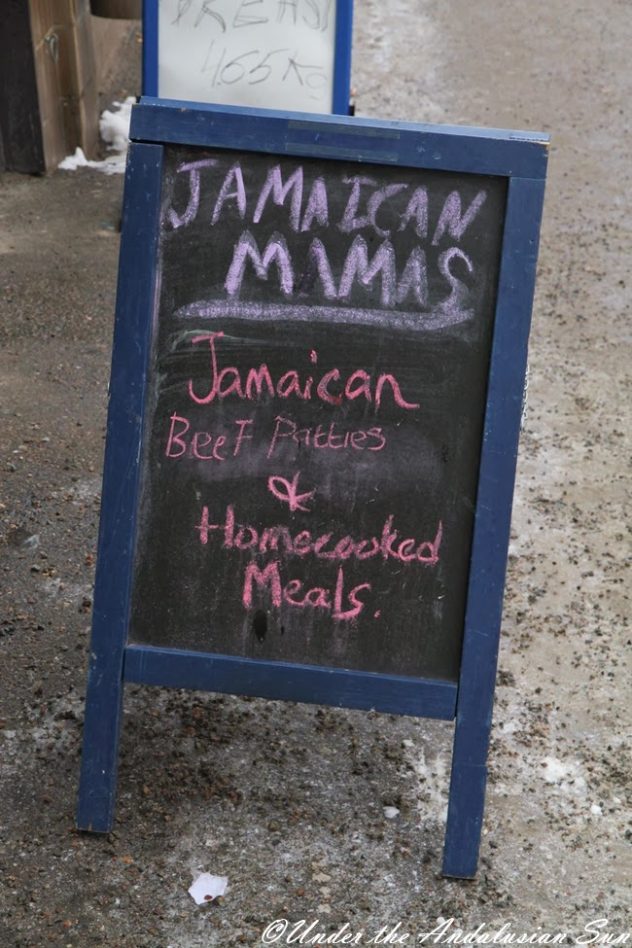 4.65 KG
JAMAICAN
MAMAS
Jamaican
BEEF Patties
&
Homecooked
Meals.
©Under the Andalusian Sun